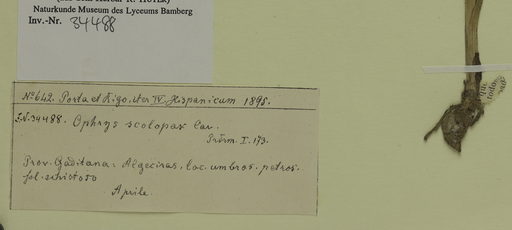 (aus dem Herbar R. HUTER)
Naturkunde Museum des Lyceums Bamberg
Inv.-Nr. 34488
No 642. Porta et Rigo, iter IV. Hispanicum 1895.
I.N. 34488. Ophrys scolopax Cav.
Pródrm. I. 173.
Prov. Gaditana: Algeciras, loc. umbros. petros.
sol. schistoso
Aprile